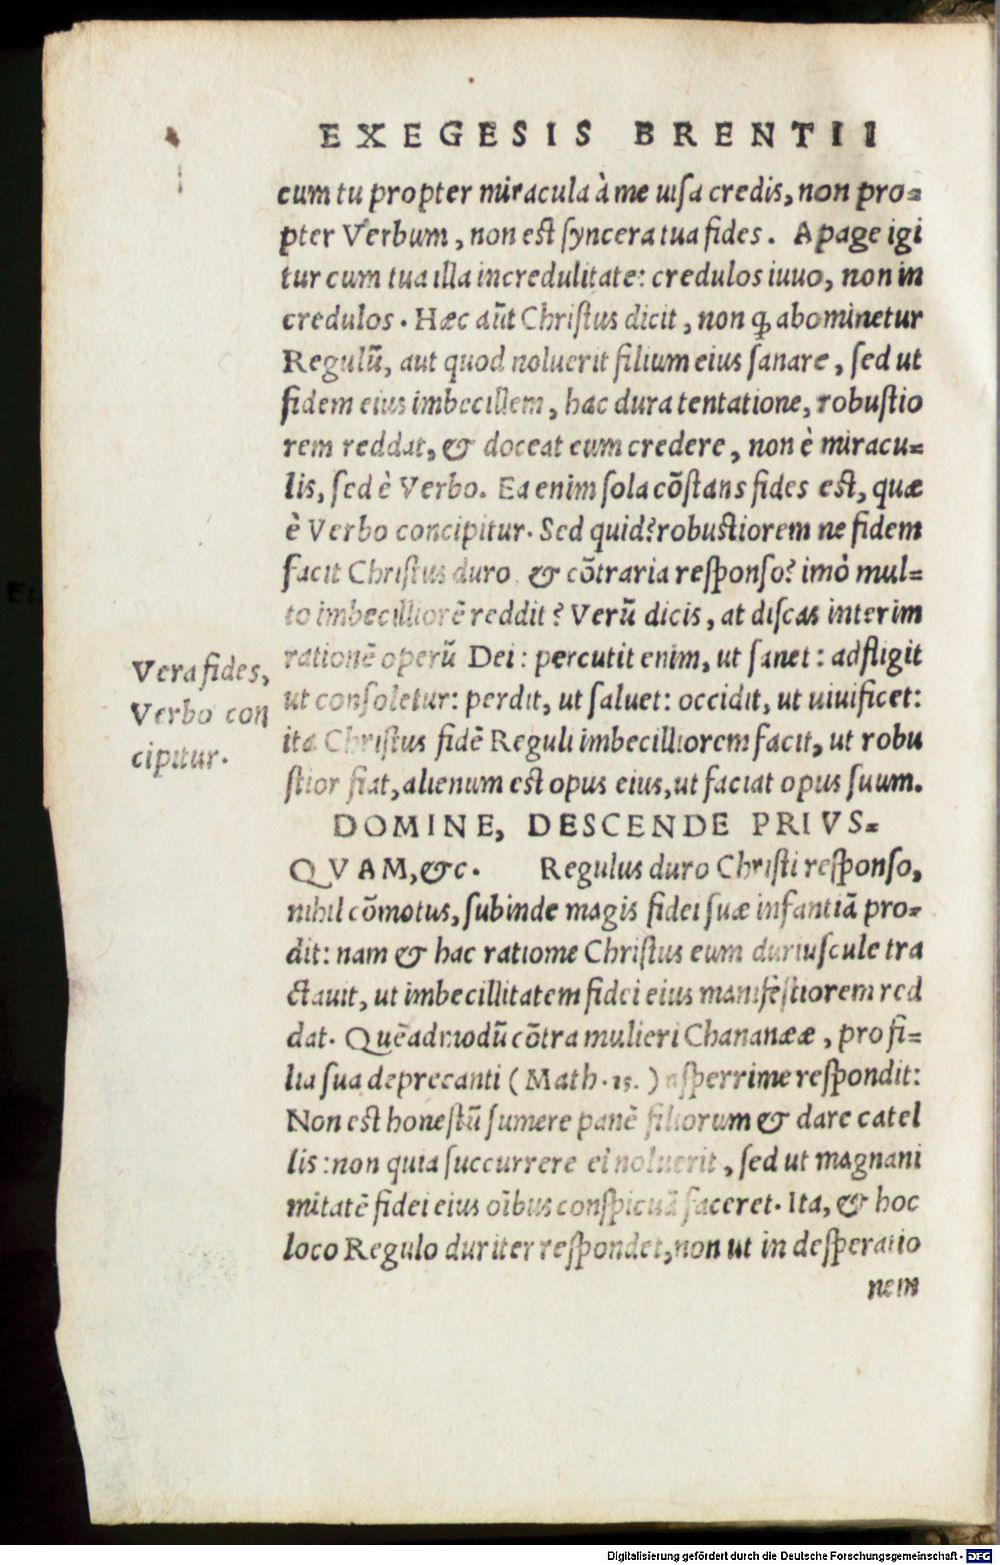 EXEGESIS BRENTII
cum tu propter miracula à me uisa credis, non pro-
pter Verbum, non est syncera tua fides. Apage igi
tur cum tua illa incredulitate: credulos iuuo, non in
credulos. Hæc aũt Christus dicit, non ꝙ abominetur
Regulũ, aut quod noluerit filium eius sanare, sed ut
fidem eius imbecillem, hac dura tentatione, robustio
rem reddat, & doceat eum credere, non è miracu-
lis, sed è Verbo. Ea enim sola cõstans fides est, quæ
è Verbo concipitur. Sed quid? robustiorem ne fidem
facit Christus duro & cõtraria responso? imò mul-
to imbecilliorẽ reddit? Verũ dicis, at discas interim
rationẽ operũ Dei: percutit enim, ut sanet: adfligit
ut consoletur: perdit, ut saluet: occidit, ut uiuificet:
ita Christus fidẽ Reguli imbecilliorem facit, ut robu
stior fiat, alienum est opus eius, ut faciat opus suum.
Vera fides,
Verbo con
cipitur.
DOMINE, DESCENDE PRIVS-
QVAM, &c. Regulus duro Christi responso,
nihil cõmotus, subinde magis fidei suæ infantiã pro-
dit: nam & hac ratiome Christus eum duriuscule tra
ctauit, ut imbecillitatem fidei eius manifestiorem red
dat. Quẽadmodũ cõtra mulieri Chananææ, pro fi-
lia sua deprecanti (Math. 15.) asperrime respondit:
Non est honestũ sumere panẽ filiorum & dare catel
lis: non quia succurrere ei noluerit, sed ut magnani
mitatẽ fidei eius oĩbus conspicuã faceret. Ita, & hoc
loco Regulo duriter respondet, non ut in desperatio
nem
Digitalisierung gefördert durch die Deutsche Forschungsgemeinschaft - DFG